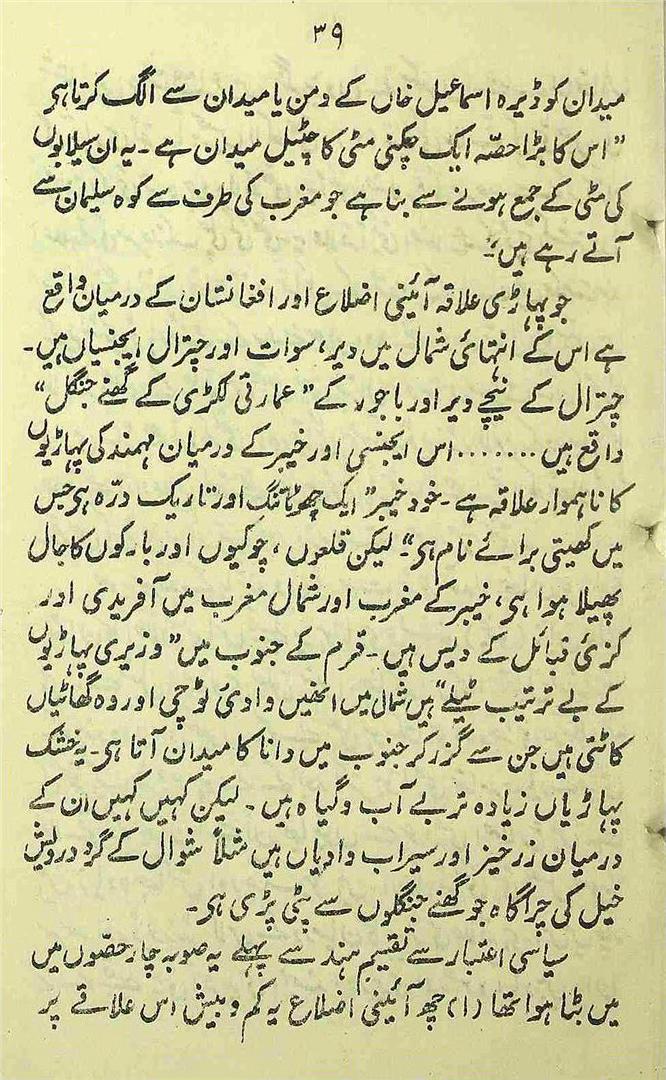 ۳۹
میدان کو ڈیرہ اسماعیل خاں کے دمن یا میدان سے الگ کرتا ہی
”اس کا بڑا حصّہ ایک چکنی مٹی کا چٹیل میدان ہے ۔ یہ ان سیلابوں
کی مٹی کے جمع ہونے سے بنا ہے جو مغرب کی طرف سے کوہ سلیمان سے
آتے رہے ہیں“۔
جو پہاڑی علاقہ آئینی اضلاع اور افغانستان کے درمیان واقع
ہے اس کے انتہائی شمال میں دیر، سوات اور چترال ایجنسیاں ہیں۔
چترال کے نیچے دیر اور باجوڑ کے ”عمارتی لکڑی کے گھنے جنگل“
واقع ہیں ....... اس ایجنسی اور خیبر کے درمیان مہمند کی پہاڑیوں
کا ناہموار علاقہ ہے ۔ خود خیبر ”ایک چھوٹا تنگ اور تاریک درّہ ہی جس
میں کھیتی برائے نام ہی“۔ لیکن قلعوں ، چوکیوں اور بارکوں کا جال
پھیلا ہوا ہی، خیبر کے مغرب اور شمال مغرب میں آفریدی اور
کزئی قبائل کے دیس ہیں ۔ قرم کے جنوب میں ”وزیری پہاڑیوں
کے بے ترتیب ٹیلے“ ہیں شمال میں انھیں وادیٔ ٹوچی اور وہ گھاٹیاں
کاٹتی ہیں جن سے گزر کر جنوب میں دانا کا میدان آتا ہی۔ یہ خشک
پہاڑیاں زیادہ تر بے آب و گیاہ ہیں ۔ لیکن کہیں کہیں ان کے
درمیان زرخیز اور سیراب وادیاں ہیں مثلاً شوال کے گرد درویش
خیل کی چراگاہ جو گھنے جنگلوں سے پٹی پڑی ہی ۔
سیاسی اعتبار سے تقسیم ہند سے پہلے یہ صوبہ چار حصّوں میں
میں بٹا ہوا تھا (۱) چھ آئینی اضلاع یہ کم و بیش اس علاقے پر